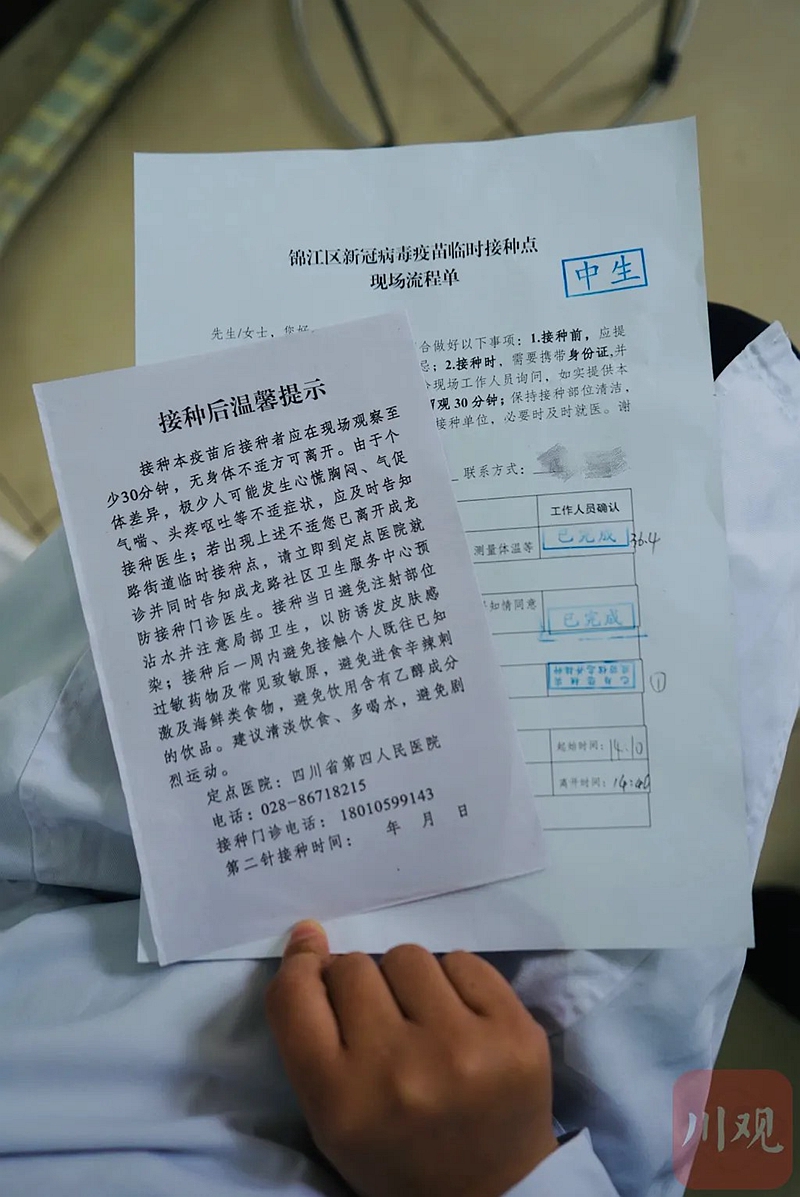 锦江区新冠病毒疫苗临时接种点
现场流程单
中生
先生/女士，您好
合做好以下事项：1.接种前，应提
忌；2.接种时，需要携带身份证,并
现场工作人员询问，如实提供本
观 30 分钟；保持接种部位清洁，
接种单位，必要时及时就医。谢
联系方式：
工作人员确认
测量体温等
已完成
36.4
知情同意
已完成
①
起始时间：14:10
离开时间：14:40
接种后温馨提示
接种本疫苗后接种者应在现场观察至
少30分钟，无身体不适方可离开。由于个
体差异，极少人可能发生心慌胸闷、气促
气喘、头疼呕吐等不适症状，应及时告知
接种医生；若出现上述不适您已离开成龙
路街道临时接种点，请立即到定点医院就
诊并同时告知成龙路社区卫生服务中心预
防接种门诊医生。接种当日避免注射部位
沾水并注意局部卫生，以防诱发皮肤感
染；接种后一周内避免接触个人既往已知
过敏药物及常见致敏原，避免进食辛辣刺
激及海鲜类食物，避免饮用含有乙醇成分
的饮品。建议清淡饮食、多喝水，避免剧
烈运动。
定点医院：四川省第四人民医院
电话：028-86718215
接种门诊电话：18010599143
第二针接种时间： 年 月 日
川观